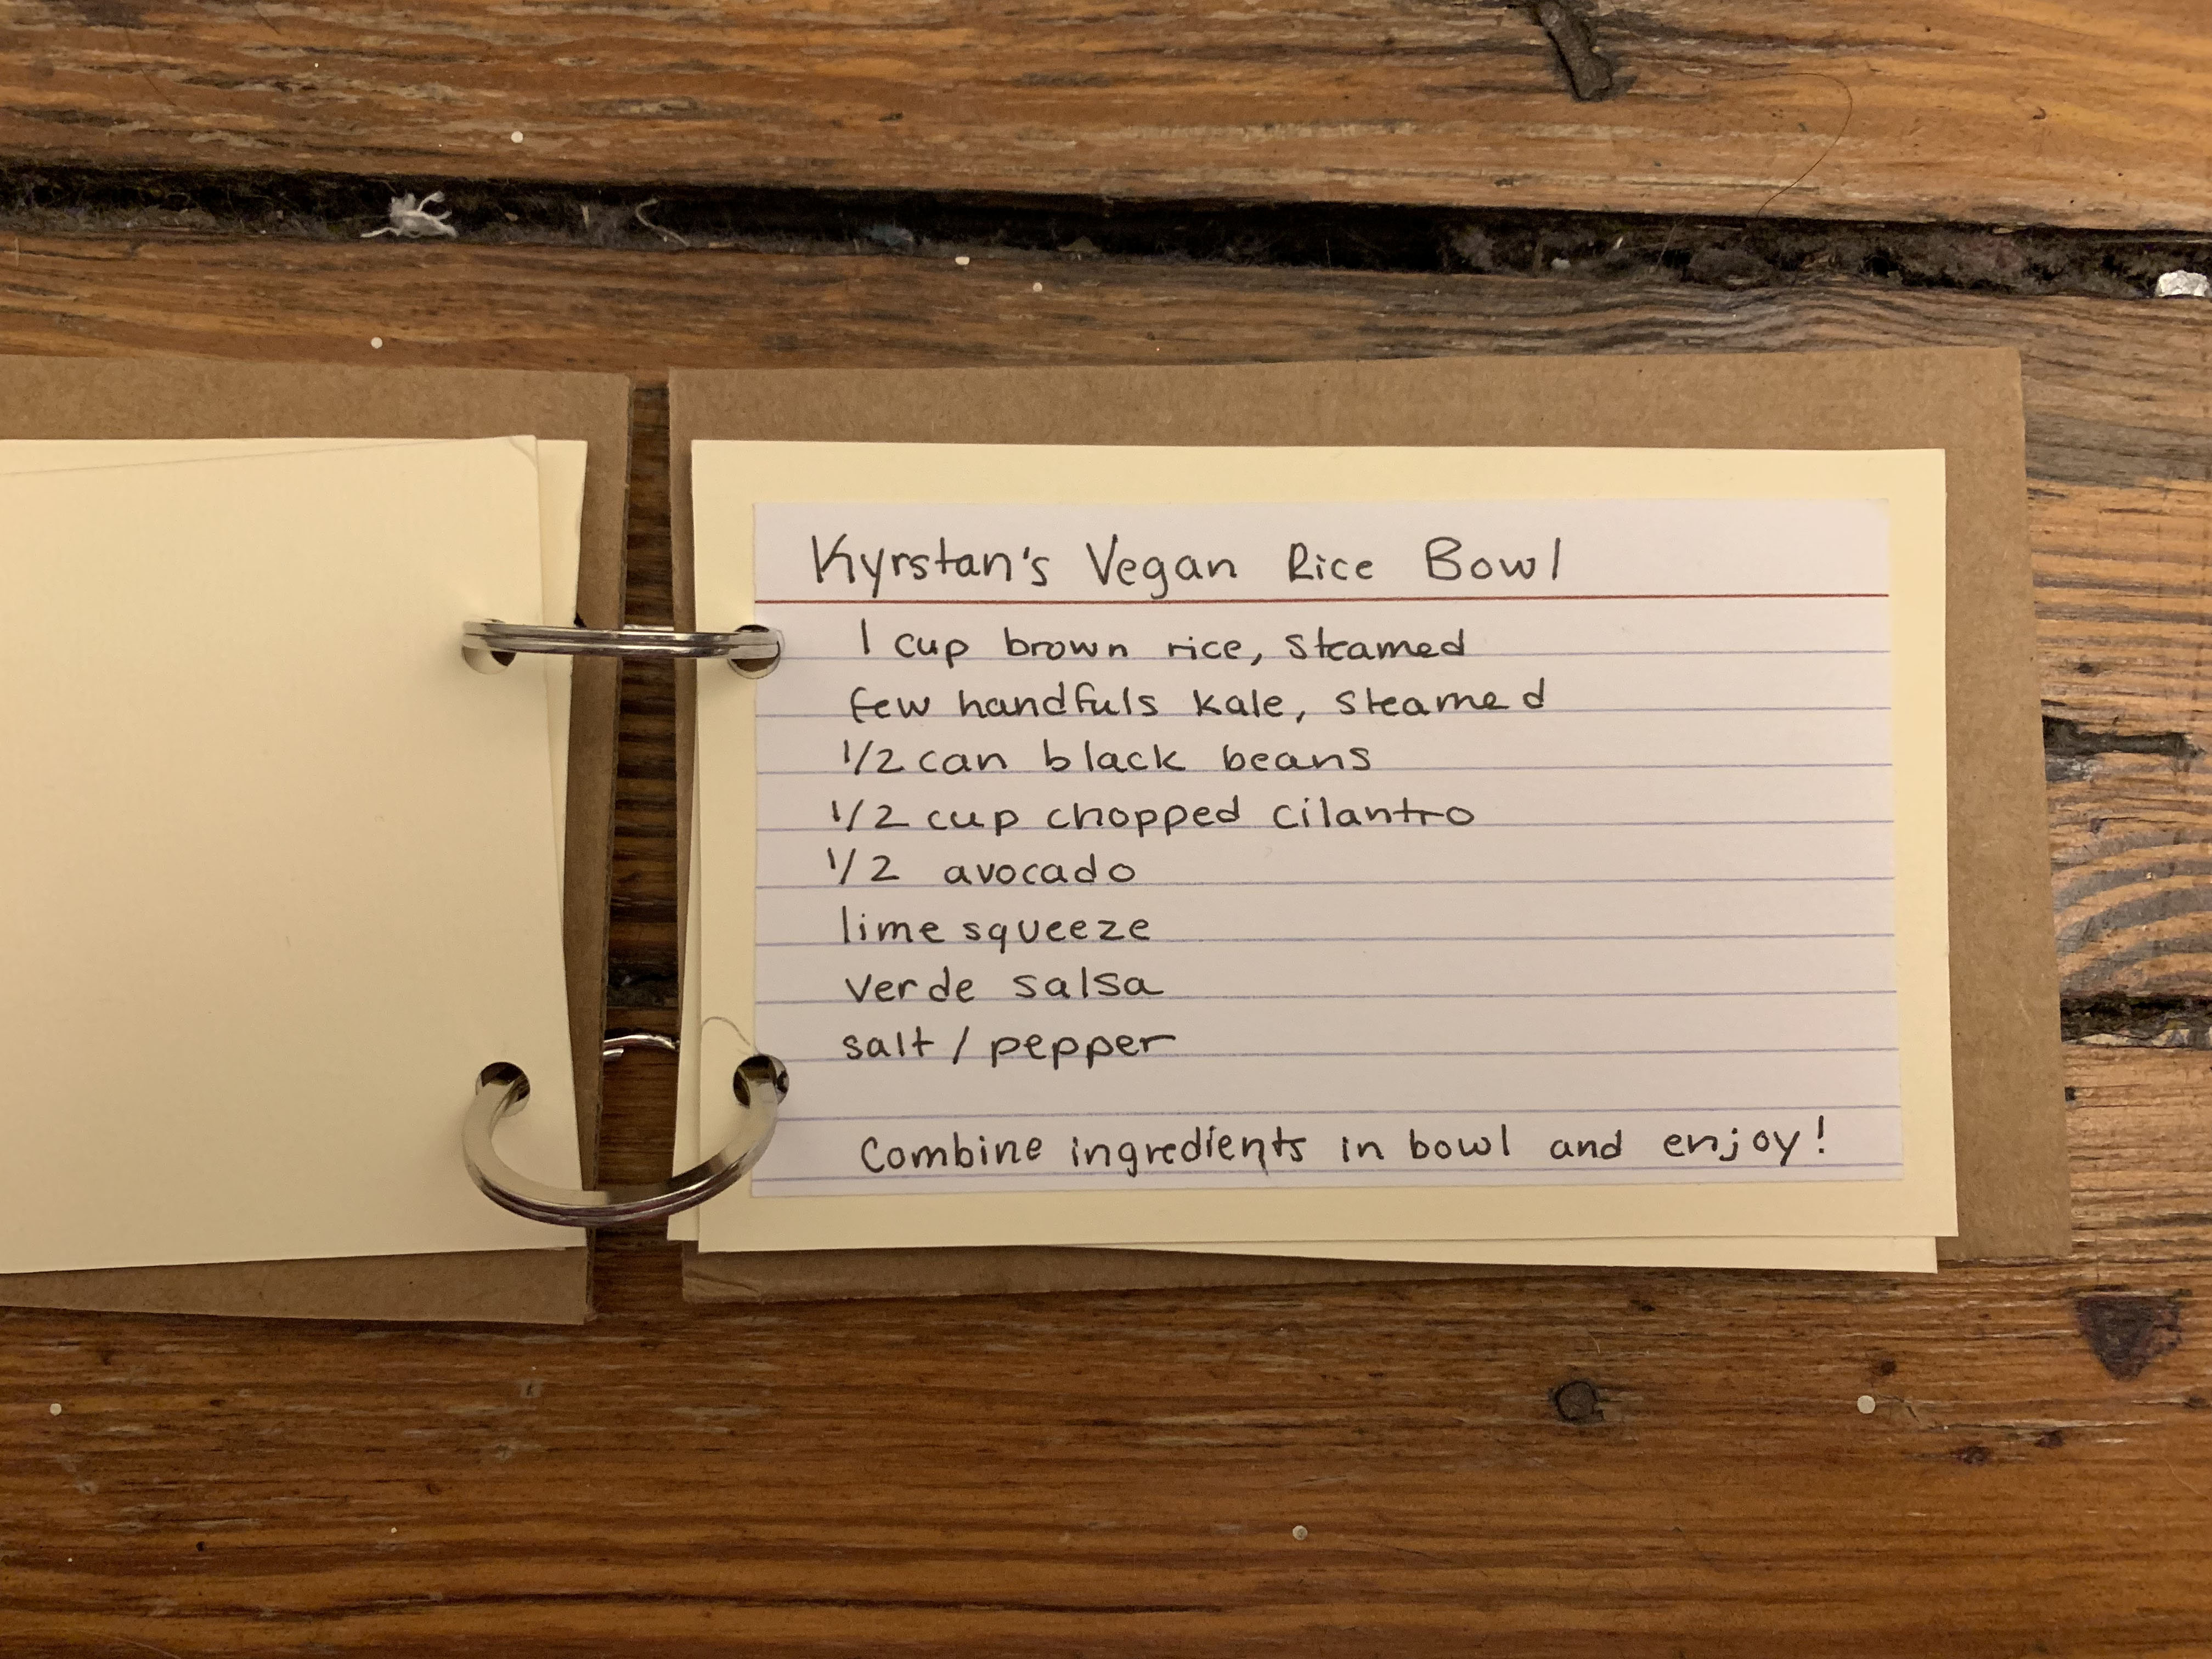 Kyrstan's Vegan Rice Bowl
1 cup brown rice, steamed
few handfuls kale, steamed
1/2 can black beans
1/2 cup chopped cilantro
1/2 avocado
lime squeeze
verde salsa
salt / pepper
Combine ingredients in bowl and enjoy!